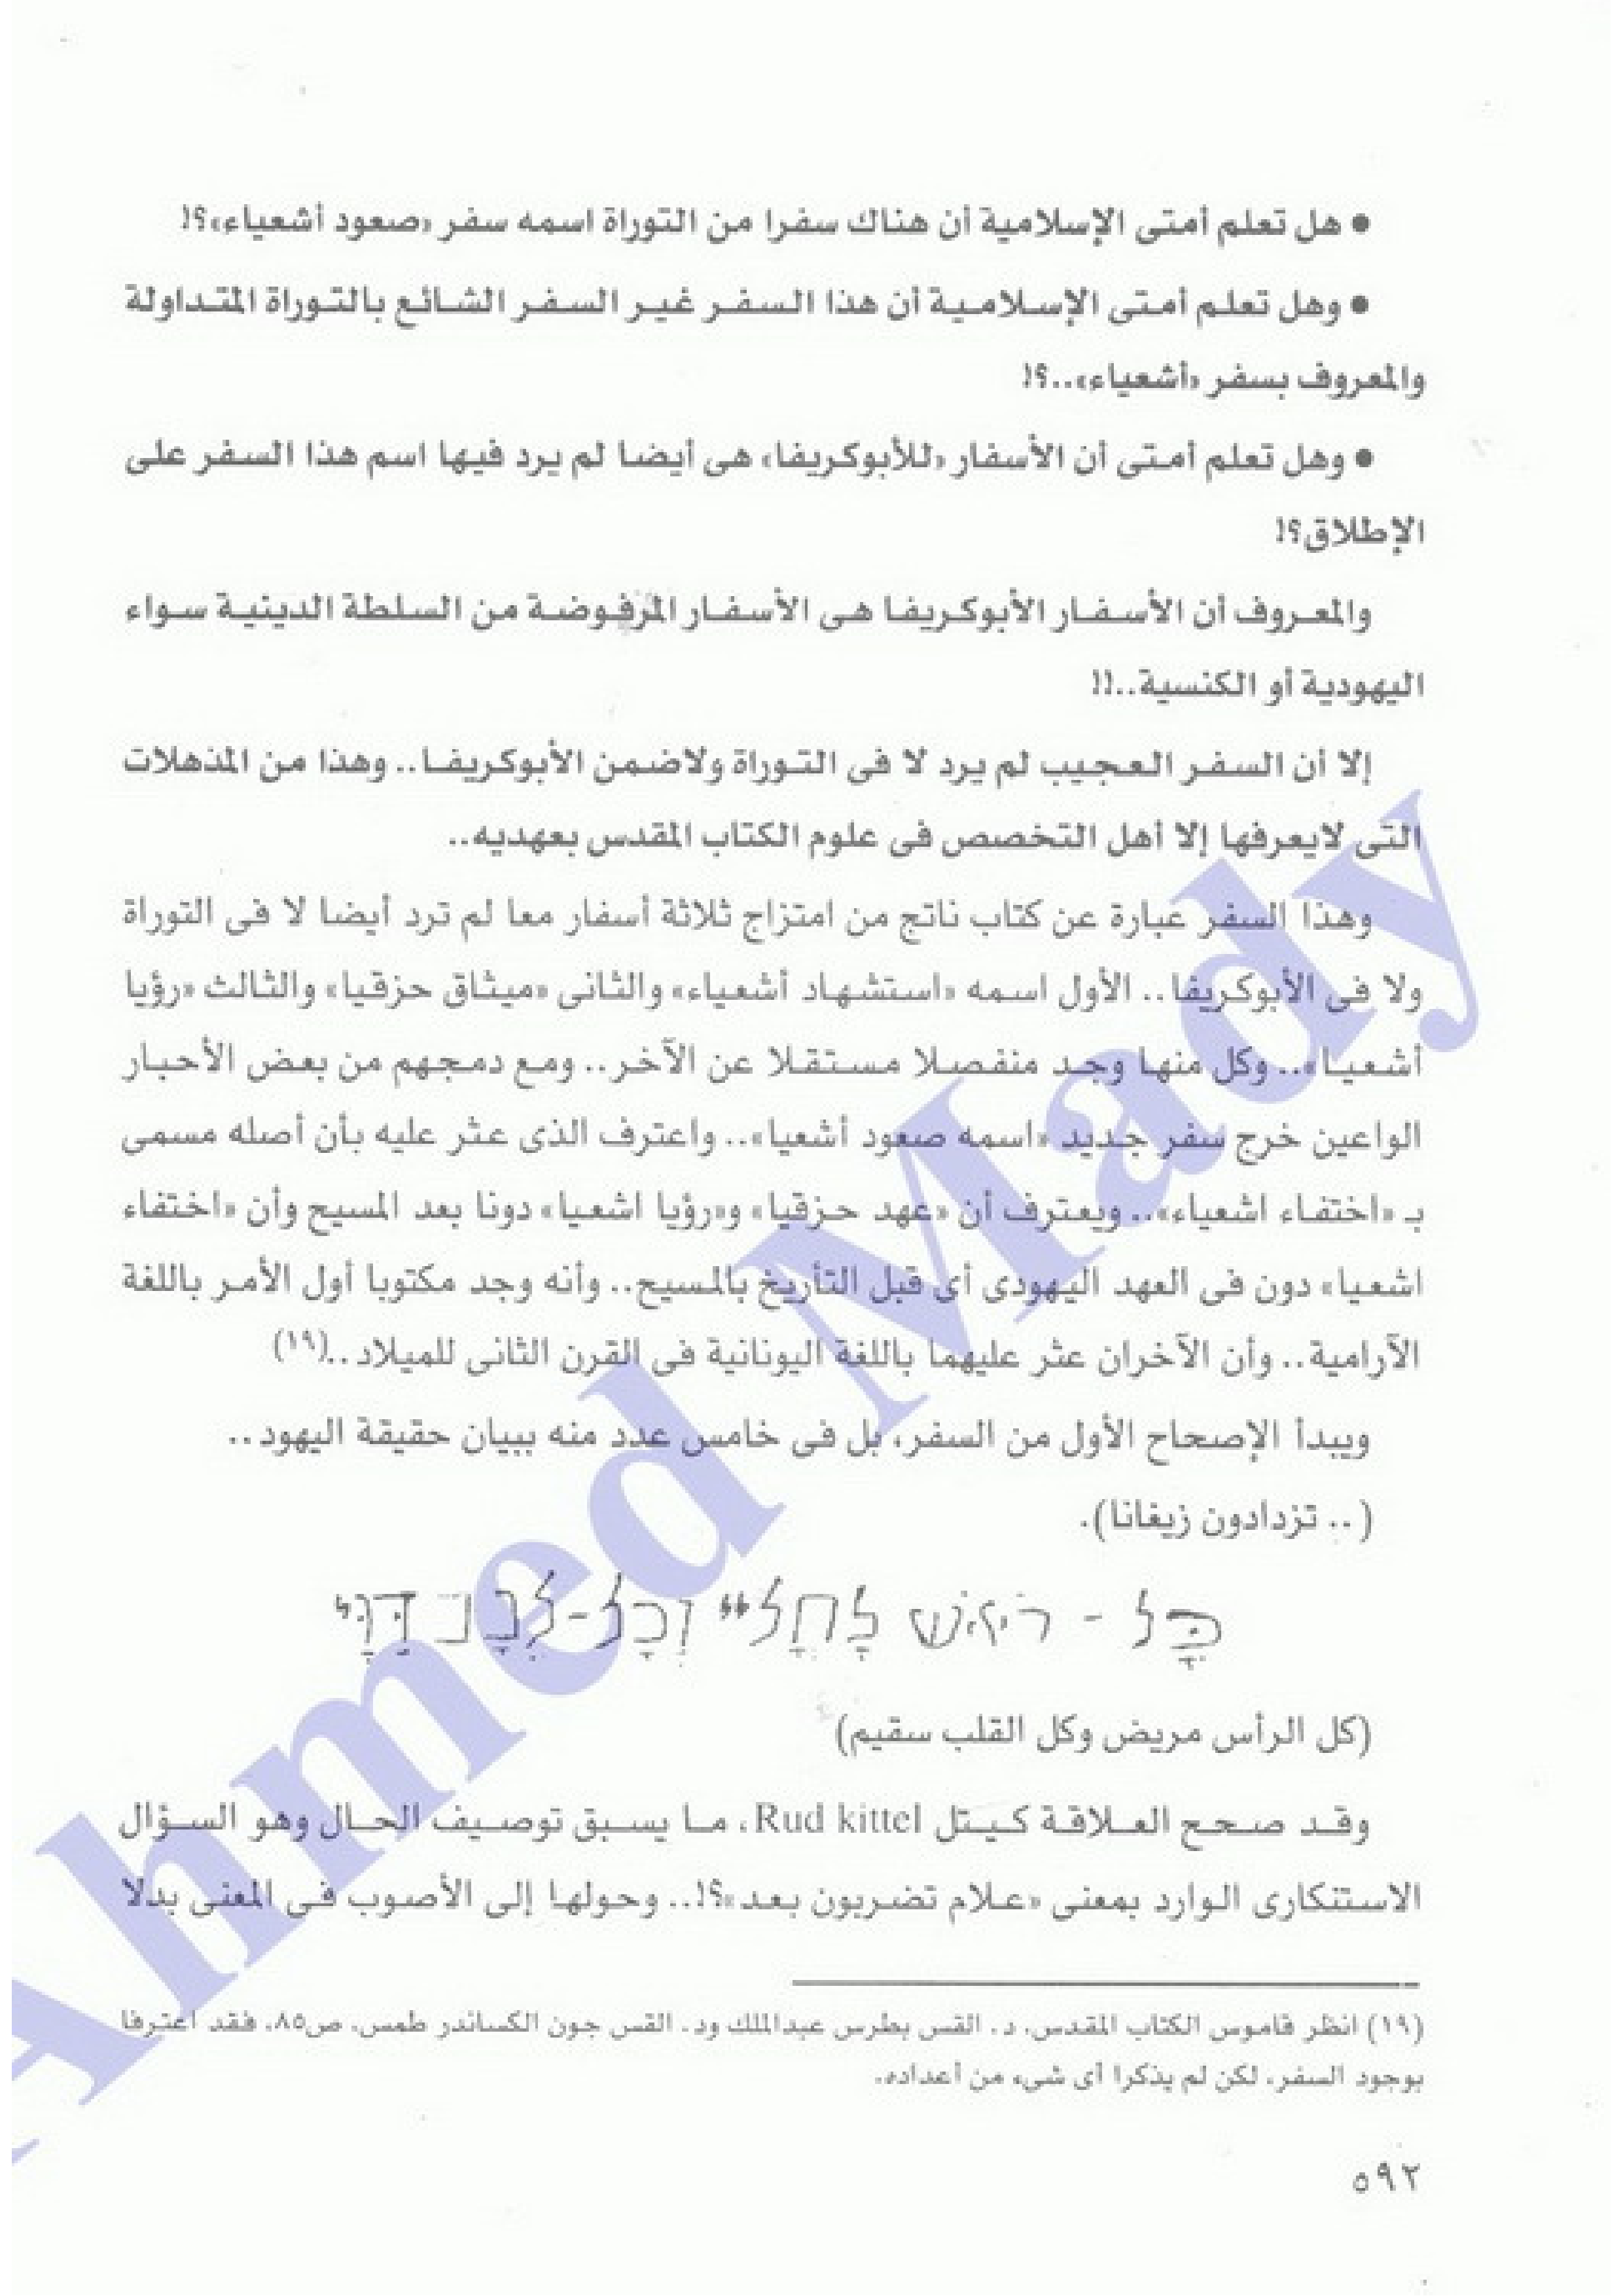 ● هل تعلم أمتى الإسلامية أن هناك سفرا من التوراة اسمه سفر «صعود أشعياء»؟!
● وهل تعلم أمتى الإسلامية أن هذا السفر غير السفر الشائع بالتوراة المتداولة
والمعروف بسفر «أشعياء»..؟!
● وهل تعلم أمتى أن الأسفار «للأبوكريفا» هى أيضا لم يرد فيها اسم هذا السفر على
الإطلاق؟!
والمعروف أن الأسفار الأبوكريفا هى الأسفار المرفوضة من السلطة الدينية سواء
اليهودية أو الكنسية..!!
إلا أن السفر العجيب لم يرد لا فى التوراة ولاضمن الأبوكريفا.. وهذا من المذهلات
التى لايعرفها إلا أهل التخصص فى علوم الكتاب المقدس بعهديه..
وهذا السفر عبارة عن كتاب ناتج من امتزاج ثلاثة أسفار معا لم ترد أيضا لا فى التوراة
ولا فى الأبوكريفا.. الأول اسمه «استشهاد أشعياء» والثانى «ميثاق حزقيا» والثالث «رؤيا
أشعيا».. وكل منها وجد منفصلا مستقلا عن الآخر.. ومع دمجهم من بعض الأحبار
الواعين خرج سفر جديد «اسمه صعود أشعيا».. واعترف الذى عثر عليه بأن أصله مسمى
بـ «اختفاء اشعياء».. ويعترف أن «عهد حزقيا» و«رؤيا اشعيا» دونا بعد المسيح وأن «اختفاء
اشعيا» دون فى العهد اليهودى أى قبل التأريخ بالمسيح.. وأنه وجد مكتوبا أول الأمر باللغة
الآرامية.. وأن الآخران عثر عليهما باللغة اليونانية فى القرن الثانى للميلاد..(١٩)
ويبدأ الإصحاح الأول من السفر، بل فى خامس عدد منه ببيان حقيقة اليهود..
(.. تزدادون زيغانا).
(كل الرأس مريض وكل القلب سقيم)
وقد صحح العلاقة كيتل Rud kittel، ما يسبق توصيف الحال وهو السؤال
الاستنكارى الوارد بمعنى «علام تضربون بعد»؟!.. وحولها إلى الأصوب فى المعنى بدلا
(١٩) انظر قاموس الكتاب المقدس، د. القس بطرس عبدالملك ود. القس جون الكساندر طمس، ص٨٥، فقد اعترفا
بوجود السفر، لكن لم يذكرا أى شىء من أعداده.
٥٩٢
Ahmed Mady